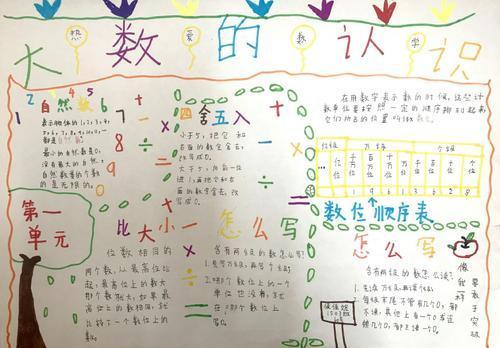 大数的认识
热 爱 数 学
1 2 3 4 5
自然数 6
7
8
9
0
表示物体的1,2,3,4,
都是自然数
最小的自然数是0,
没有最大的自然,
自然数的个数
是无限的。
四舍五入
小于5,把它和
右面的数全舍去,
改写成0。
大于5,向前一位
进1,再把它和右
面的数全舍去,改
写成0。
在用数字表示数的时候,这些计
数单位要按照一定的顺序排列起来,
它们所占的位置叫做数位。
数级 万级 个级
… 亿位 千万位 百万位 十万位 万位 千位 百位 十位 个位
数位顺序表
第一
单元
比大小
位数相同的
两个数,从最高位比
起,最高位上的数大
那个数就大,如果最
高位上的数相同,就
比较下一个数位上的
数。
怎么写
含有两级的数怎么写?
1.先写万级,再写个级
2.哪个数位上的一个
单位也没有,就
在那个数位上
写0。
怎么写
含有两级的数怎么读?
1.先读万级,再读个级
2.每级末尾不管有几个0,都
不读,其他上有一个0或连
续几个0,都只读一个0。
像我一样
要敢于突破